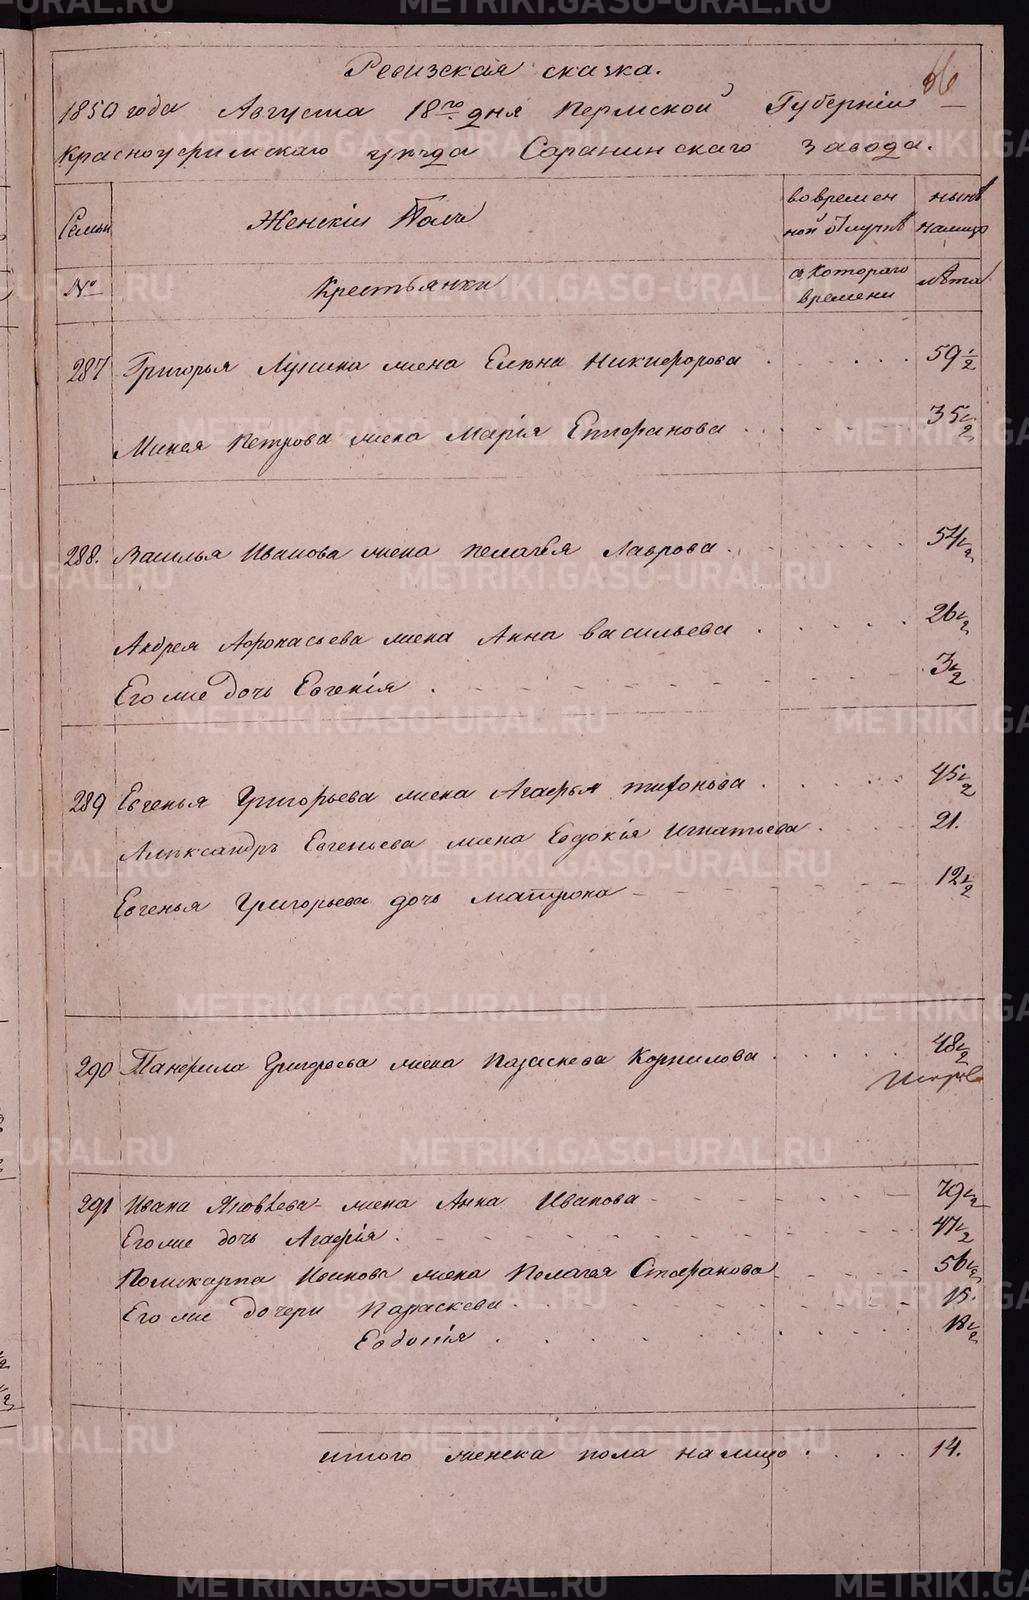 66
Ревизская сказка.
1850 года Августа 18го дня Пермской Губерніи
Красноуфимскаго уѣзда Саранинскаго завода.
Семьи Женскій Полъ во времен ной отлучкѣ нынѣ налицо
№ Крестьянки съ котораго времени лѣта
287 Григорья Лукина жена Елѣна Никифорова 59 1/2
Минея Петрова жена Марія Епифанова 35 1/2
288. Василья Иванова жена Пелагѣя Лаврова 54 1/2
Андрея Афонасьева жена Анна Васильева 26 1/2
Его же дочь Евгенія 3 1/2
289 Евгенья Григорьева жена Агафья Тифонова 45 1/2
Александръ Евгеньева жена Евдокія Игнатьева 21.
Евгенья Григорьева дочь Матрона 12 1/2
290 Панфила Григорьева жена Параскева Корнилова 48 1/2
291 Ивана Яковлева жена Анна Иванова 79 1/2
Его же дочь Агафія 47 1/2
Поликарпа Иванова жена Полагея Стефанова 56 1/2
Его же дочери Параскева 15.
Евдокія 18 1/2
итого женска пола налицо 14.
METRIKI.GASO-URAL.RU